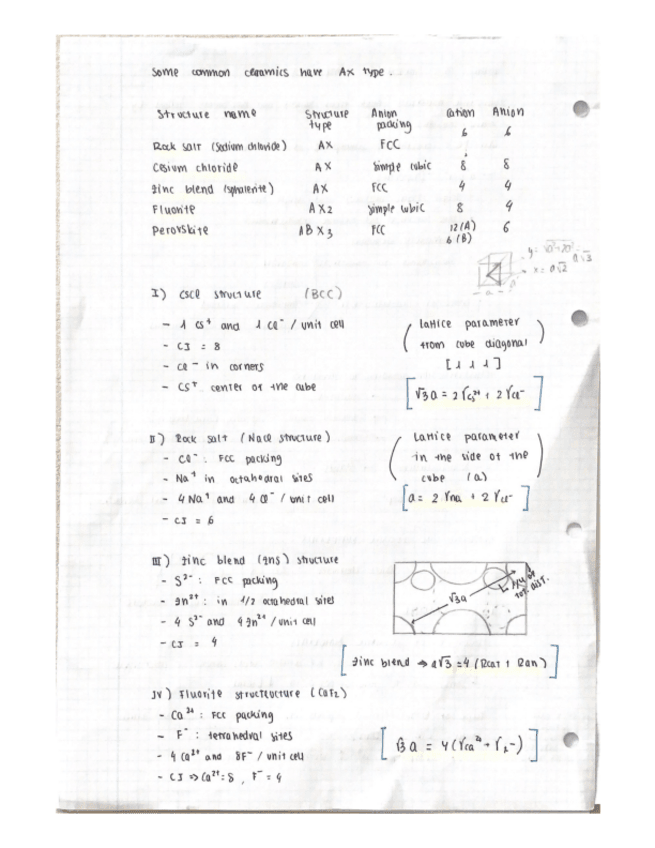 Some common ceramics have AX type.
Structure name Structure type Anion packing Cation Anion
Rock salt (Sodium chloride) AX FCC 6 6
Cesium chloride AX Simple cubic 8 8
Zinc blend (sphalerite) AX FCC 4 4
Fluorite AX2 simple cubic 8 4
Perovskite ABX3 FCC 12(A) 6(B) 6
x = a√2
a√3
I) CsCl structure (BCC)
- 1 Cs+ and 1 Cl- / unit cell
- CI = 8
- Cl- in corners
- Cs+ center of the cube
(lattice parameter
from cube diagonal)
[1 1 1]
[√3a = 2rCs²+ + 2rCl-]
II) Rock salt (NaCl structure)
- Cl- : FCC packing
- Na+ in octahedral sites
- 4 Na+ and 4 Cl- / unit cell
- CI = 6
(Lattice parameter
in the side of the
cube (a))
[a = 2rNa + 2rCl-]
III) Zinc blend (ZnS) structure
- S2- : FCC packing
- Zn2+ : in 1/2 octahedral sites
- 4 S2- and 4 Zn2+ / unit cell
- CI = 4
√3a
1/4 of
tot. dist.
[Zinc blend → a√3 = 4(Rcat + Ran)]
IV) Fluorite structructure (CaF2)
- Ca2+ : FCC packing
- F- : tetrahedral sites
- 4 Ca2+ and 8F- / unit cell
- CI ⇒ Ca2+=8, F-=4
[√3 a = 4(rCa²+ + rF-)]